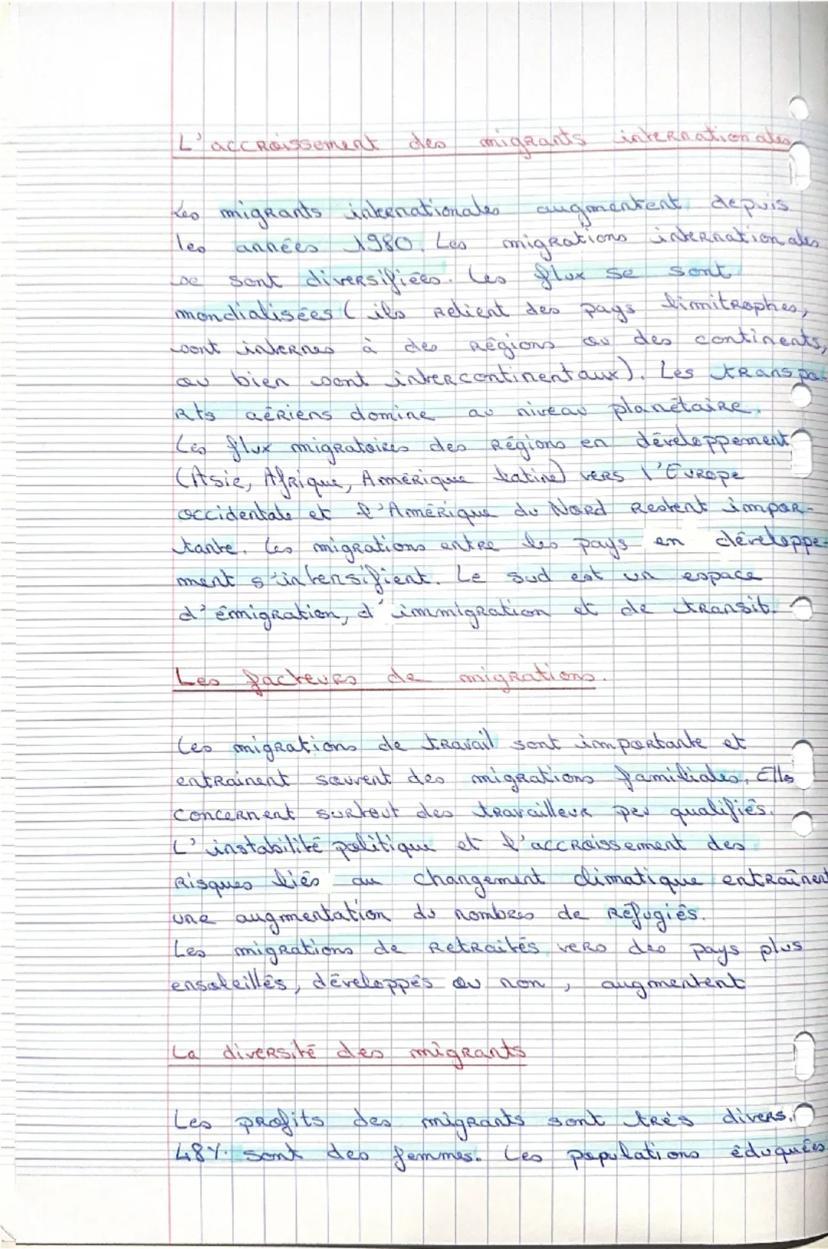 L'accroissement des migrants internationales
Les migrants internationales augmentent depuis
les années 1980. Les migrations internationales
se sont diversifiées. Les flux se sont
mondialisées (ils relient des pays limitrophes,
sont internes à des régions ou des continents,
ou bien sont intercontinentaux). Les transpo-
rts aériens domine au niveau planétaire.
Les flux migratoires des régions en développement
(Asie, Afrique, Amérique latine) vers l'Europe
occidentale et l'Amérique du Nord restent impor-
tante. Les migrations entre les pays en développe-
ment s'intensifient. Le sud est un espace
d'émigration, d'immigration et de transit.
Les facteurs de migrations.
Les migrations de travail sont importante et
entrainent souvent des migrations familiales. Elles
concernent surtout des travailleur peu qualifiés.
L'instabilité politique et l'accroissement des
risques liés au changement climatique entraînent
une augmentation du nombres de réfugiés.
Les migrations de retraités vers des pays plus
ensoleillés, développés ou non, augmentent
La diversité des migrants
Les profits des migrants sont très divers.
48% sont des femmes. Les populations éduquées